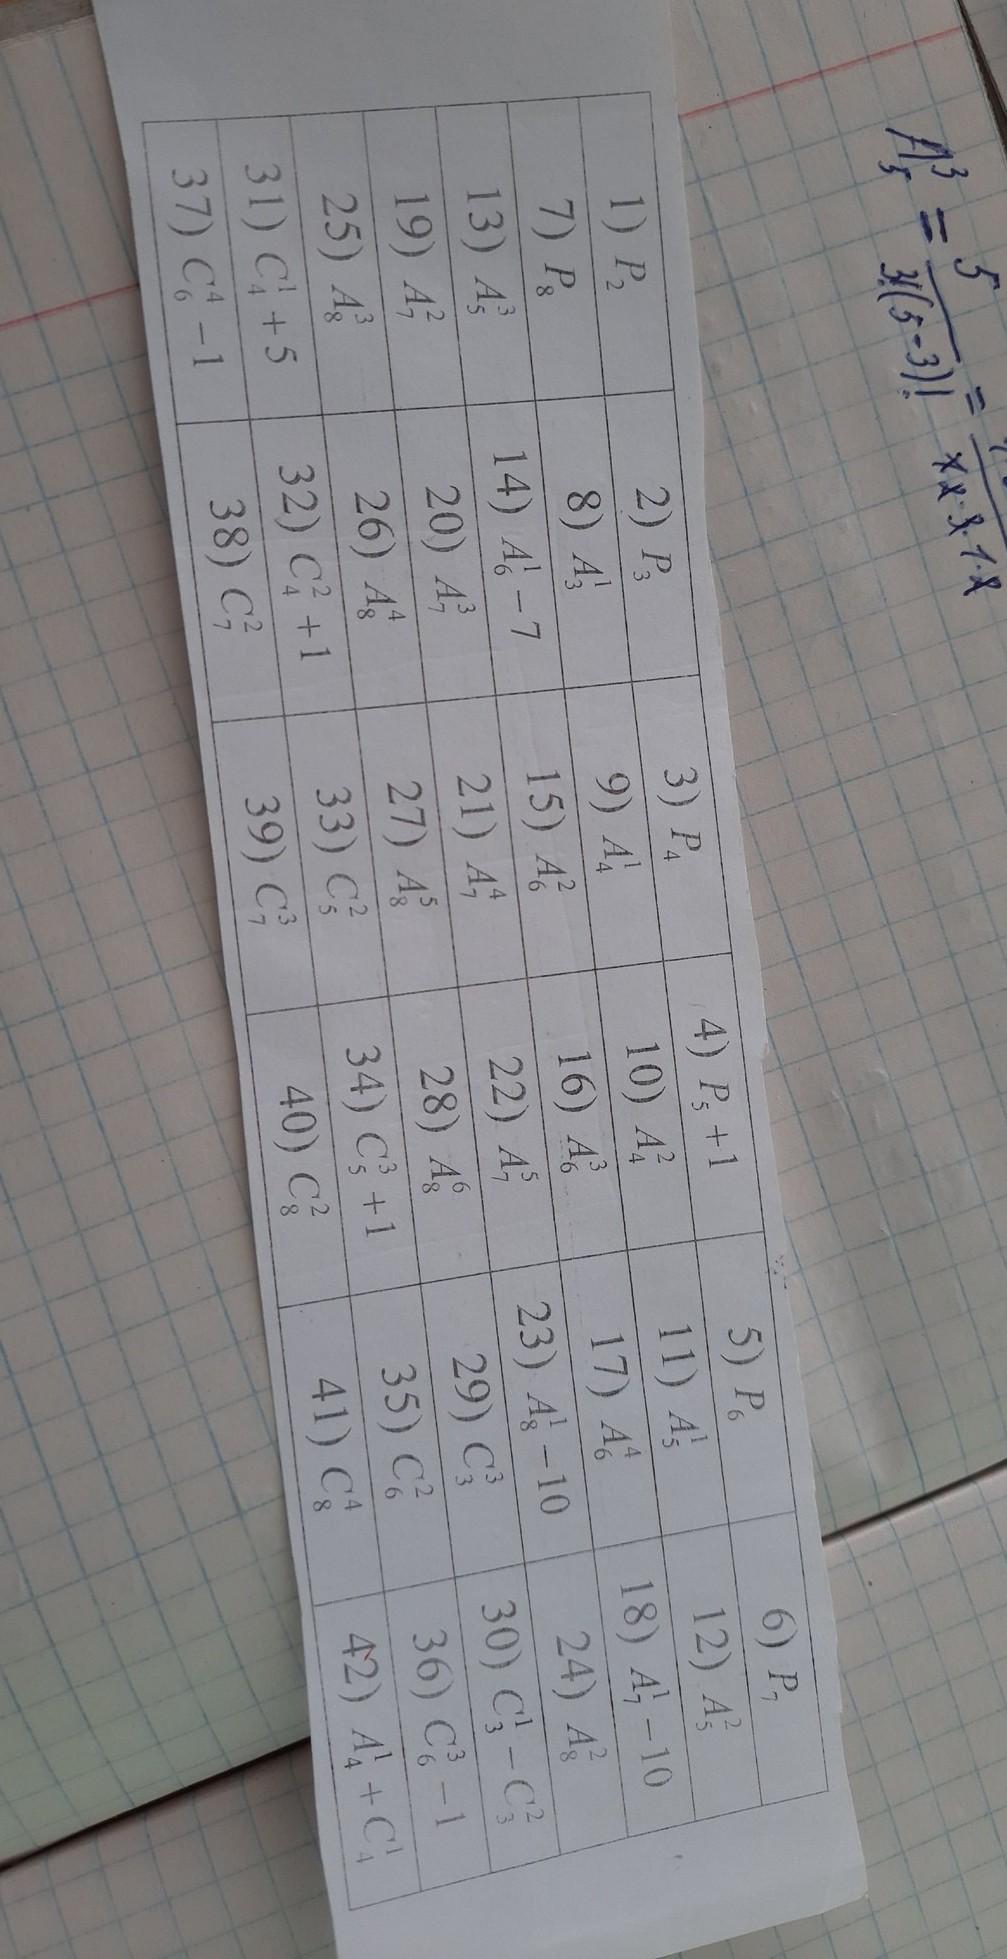 A₅³ = 5 / 3!(5-3)! =
1) P₂ 2) P₃ 3) P₄ 4) P₅ + 1 5) P₆ 6) P₇
7) P₈ 8) A₃¹ 9) A₄¹ 10) A₄² 11) A₅¹ 12) A₅²
13) A₅³ 14) A₆¹ − 7 15) A₆² 16) A₆³ 17) A₆⁴ 18) A₇¹ − 10
19) A₇² 20) A₇³ 21) A₇⁴ 22) A₇⁵ 23) A₈¹ − 10 24) A₈²
25) A₈³ 26) A₈⁴ 27) A₈⁵ 28) A₈⁶ 29) C₃³ 30) C₃¹ − C₃²
31) C₄¹ + 5 32) C₄² + 1 33) C₅² 34) C₅³ + 1 35) C₆² 36) C₆³ − 1
37) C₆⁴ − 1 38) C₇² 39) C₇³ 40) C₈² 41) C₈⁴ 42) A₄¹ + C₄¹